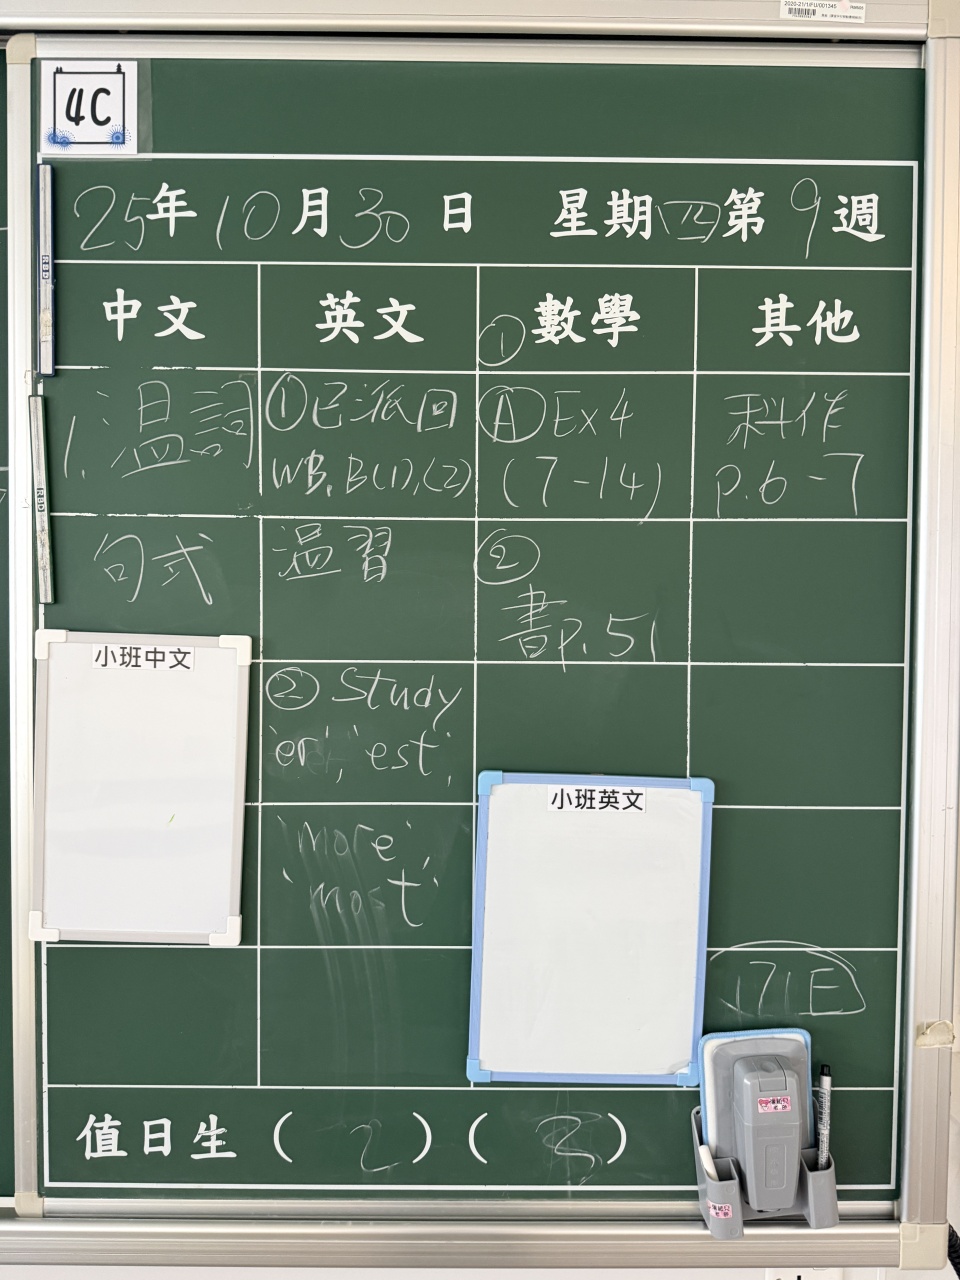 2020-21/1/FU/001345
4C
25年10月30日 星期四第9週
中文
英文
數學
其他
1.溫詞
句式
①已派回
WB, B(1),(2)
溫習
② Study
'er', 'est',
'more',
'most'
①
Ⓐ Ex 4
(7-14)
②
書p.51
科作
p.6-7
小班中文
小班英文
值日生( 2 )( 3 )
RBD
RBD